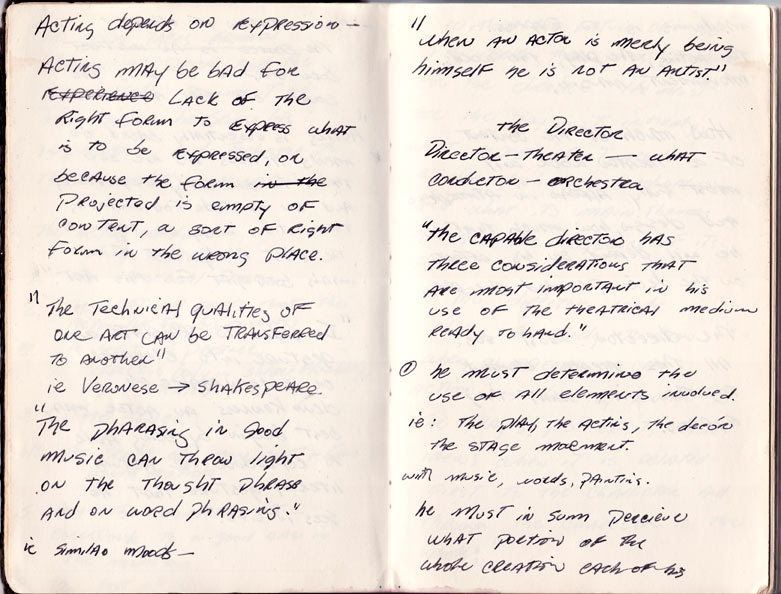 Acting depends on expression—
Acting may be bad for
Experience Lack of the
right form to express what
is to be expressed, or
because the form in the
projected is empty of
content, a sort of right
form in the wrong place.
"The Technical qualities of
one art can be transferred
to another"
ie Veronese → Shakespeare
"The phrasing in good
music can throw light
on the thought phrase
and on word phrasing."
ie similar moods—
"
when an actor is merly being
himself he is not an artist"
the Director
Director—Theater— what
conductor— orchestra
"the capable director has
three considerations that
are most important in his
use of the theatrical medium
ready to hand."
① he must determine the
use of all elements involved.
ie: the play, the acting, the decór
the stage movment.
with music, words, painting.
he must in sum percieve
what portion of the
whole creation each of his